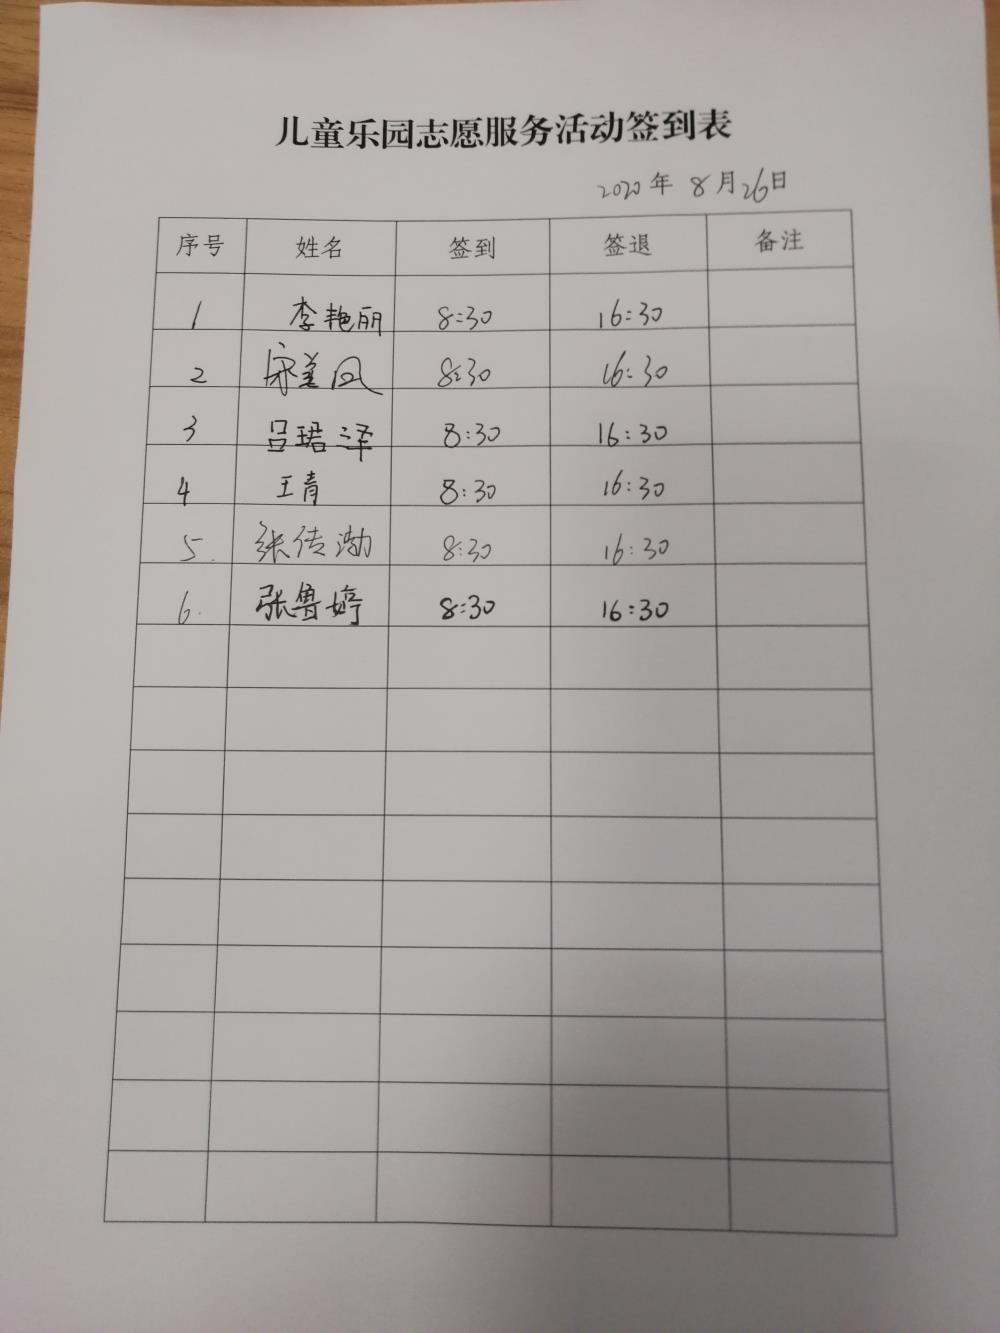 儿童乐园志愿服务活动签到表
2020年 8月26日
序号 姓名 签到 签退 备注
1 李艳丽 8:30 16:30
2 宋美凤 8:30 16:30
3 吕珺泽 8:30 16:30
4 王青 8:30 16:30
5. 张传渤 8:30 16:30
6. 张鲁婷 8:30 16:30